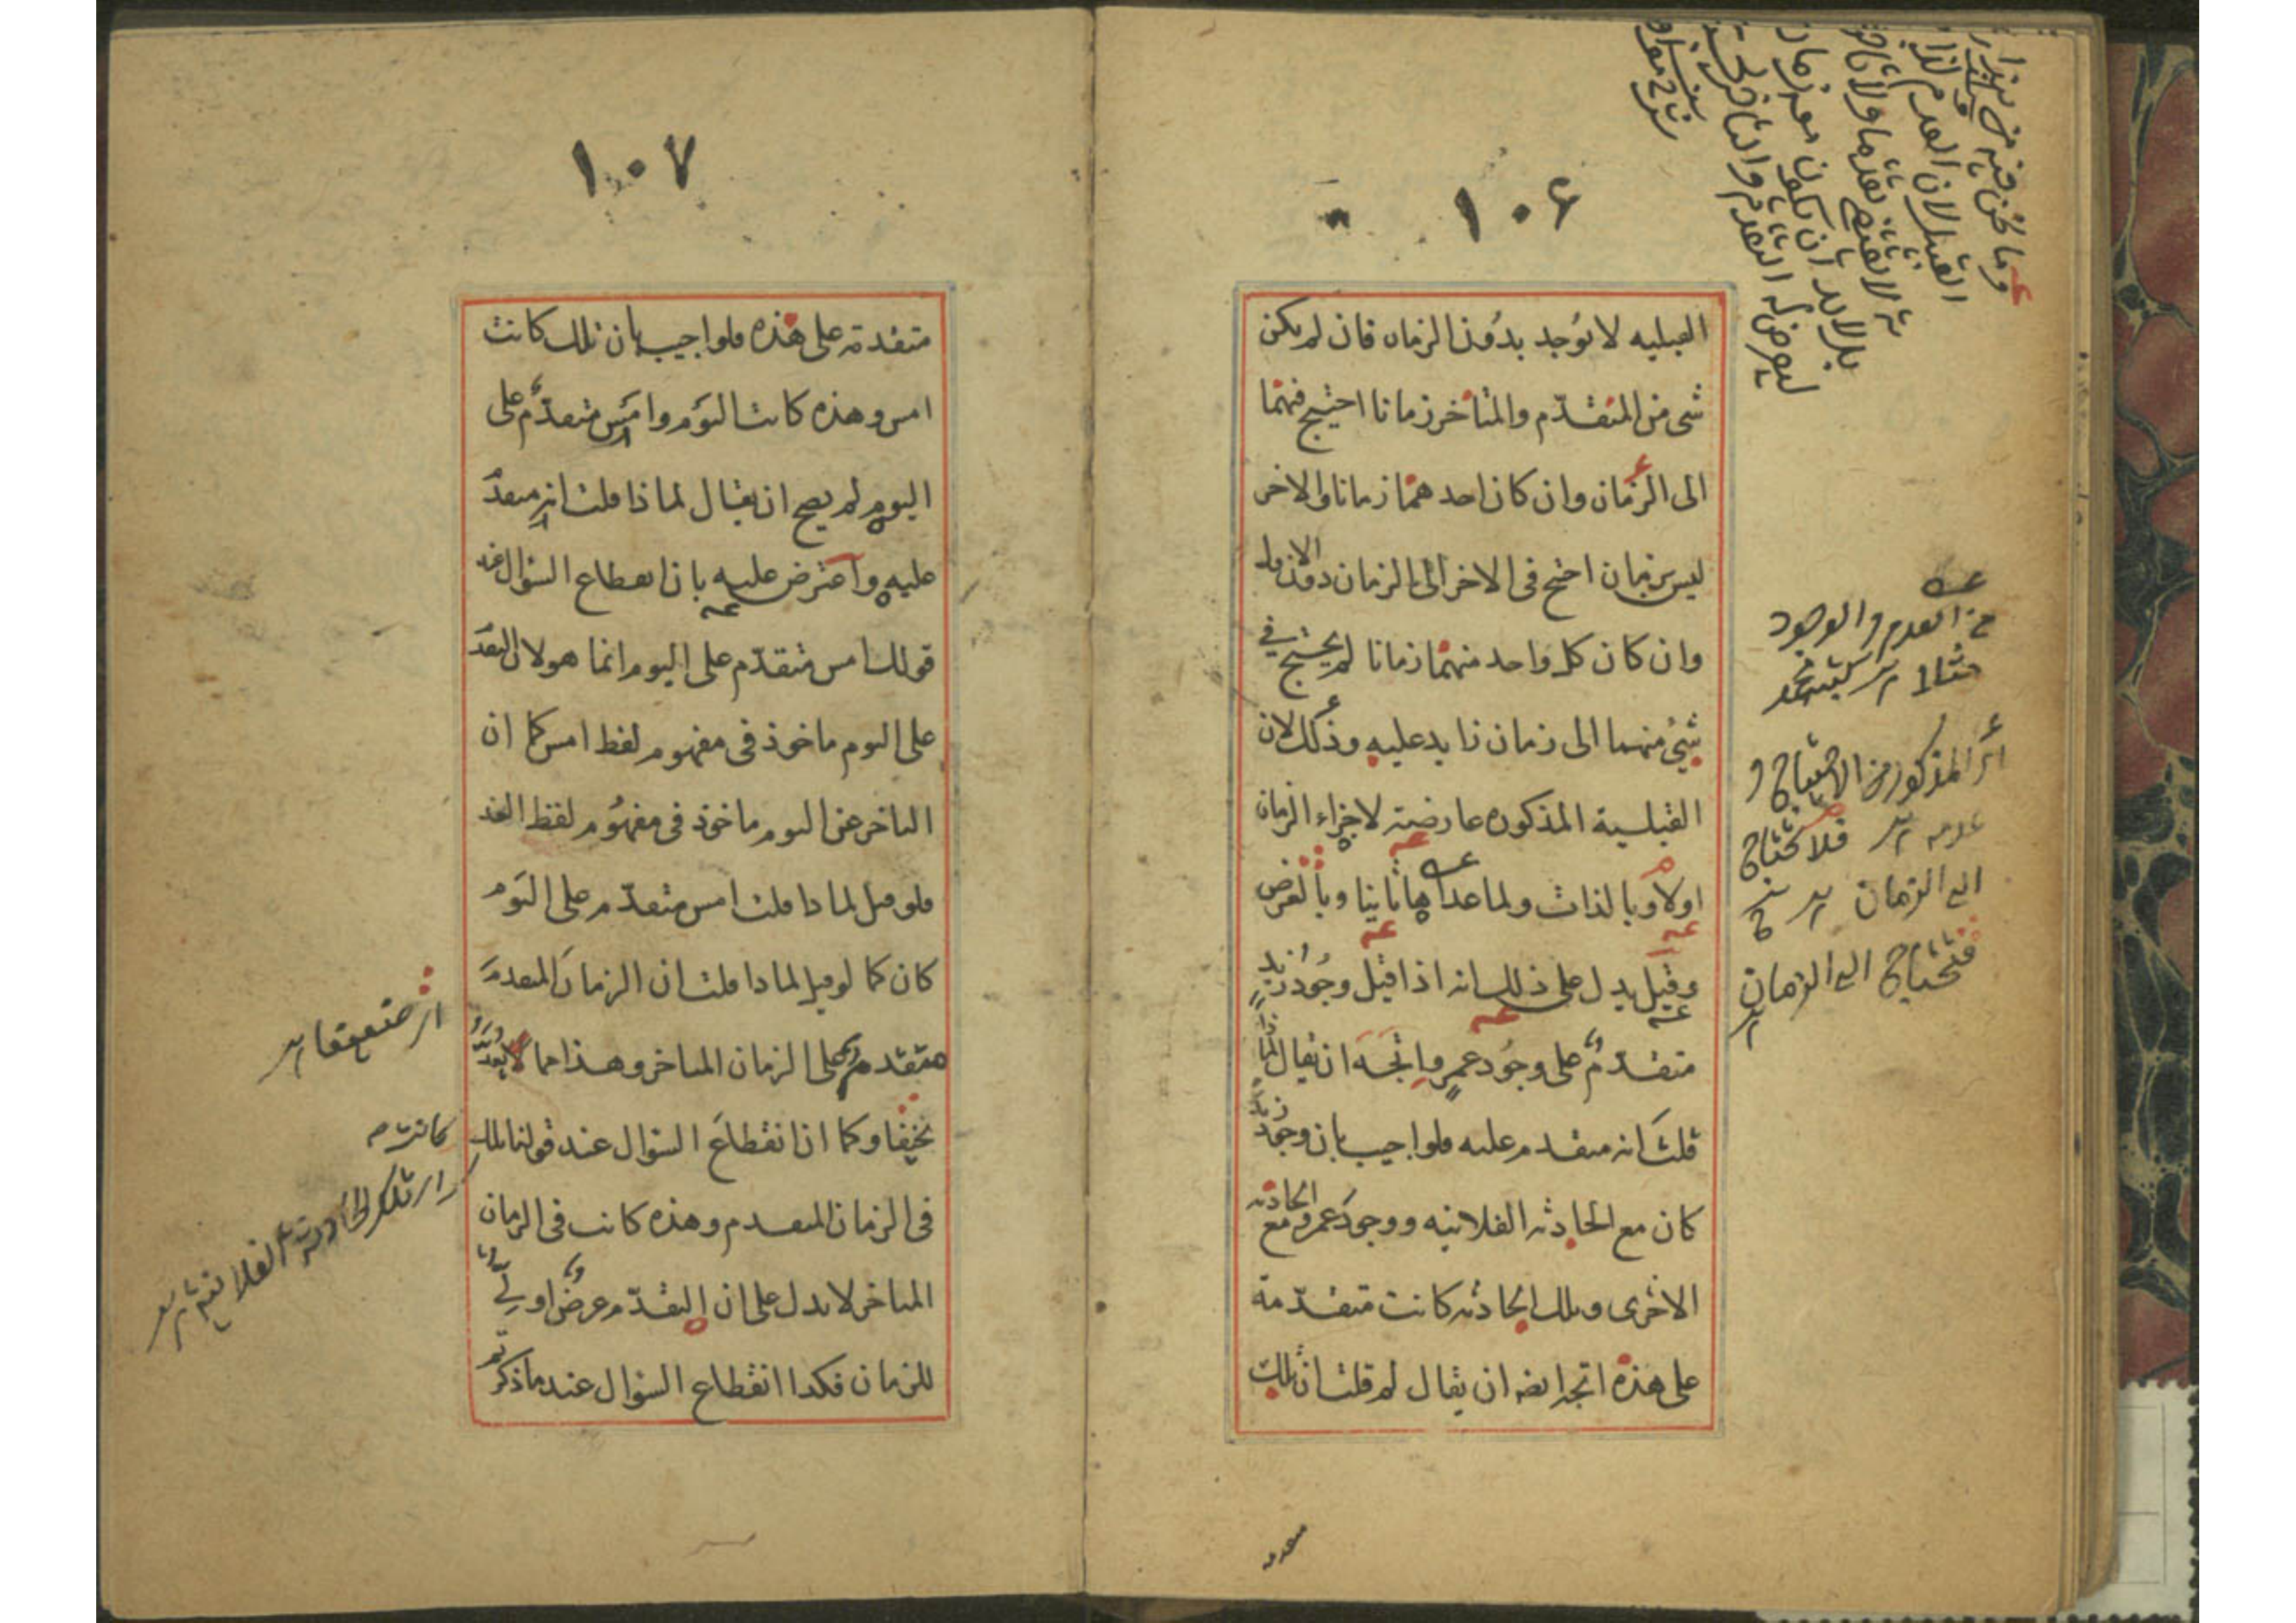 ١٠۶
القبليه لا توجد بدون الزمان فان لم يكن
شى من المتقدّم والمتاخر زمانا احتيج فيهما
الى الزمان وان كان احدهما زمانا والاخر
ليس بزمان احتيج فى الاخر الى الزمان دون الاول
وان كان كل واحد منهما زمانا لم يحتج في
شيئ منهما الى زمان زايد عليه وذلك لان
القبلية المذكوره عارضة لاجزاء الزمان
اولا وبالذات ولما عداها ثانيا وبالعرض
وقيل يدل على ذلك انه اذا قيل وجود زيد
متقدم على وجود عمرو اتجه ان يقال لماذا
قلت انه متقدم عليه فلو اجيب بان وجود زيد
كان مع الحادثه الفلانيه ووجود عمرو مع الحادثه
الاخرى وتلك الحادثه كانت متقدّمة
على هذه اتجه ايضه ان يقال لم قلت ان تلك
من العدم والوجود
مثلا
المذكور من الاحتياج و
عدمه فلا يحتاج
الى الزمان
فيحتاج الى الزمان
١٠٧
متقدمة على هذه فلو اجيب بان تلك كانت
امس وهذه كانت اليوم وامس متقدّم على
اليوم لم يصح ان يقال لماذا قلت انه متقدم
عليه واعترض عليه بان انقطاع السؤال عند
قولك امس متقدّم على اليوم انما هو لان التقدم
على اليوم ماخوذ فى مفهوم لفظ امس كما ان
التاخر عن اليوم ماخوذ فى مفهوم لفظ الغد
فلو قيل لماذا قلت امس متقدّم على اليوم
كان كما لو قيل لماذا قلت ان الزمان المتقدم
متقدم على الزمان المتاخر وهذا مما لا يعد
سخيفا وكما ان انقطاع السؤال عند قولنا تلك
فى الزمان المتقدم وهذه كانت فى الزمان
المتاخر لا يدل على ان التقدّم عرض اولى
للزمان فكذا انقطاع السؤال عند ما ذكرتم
اى ضعيفا
كانت
اى تلك الحادثة الفلانية